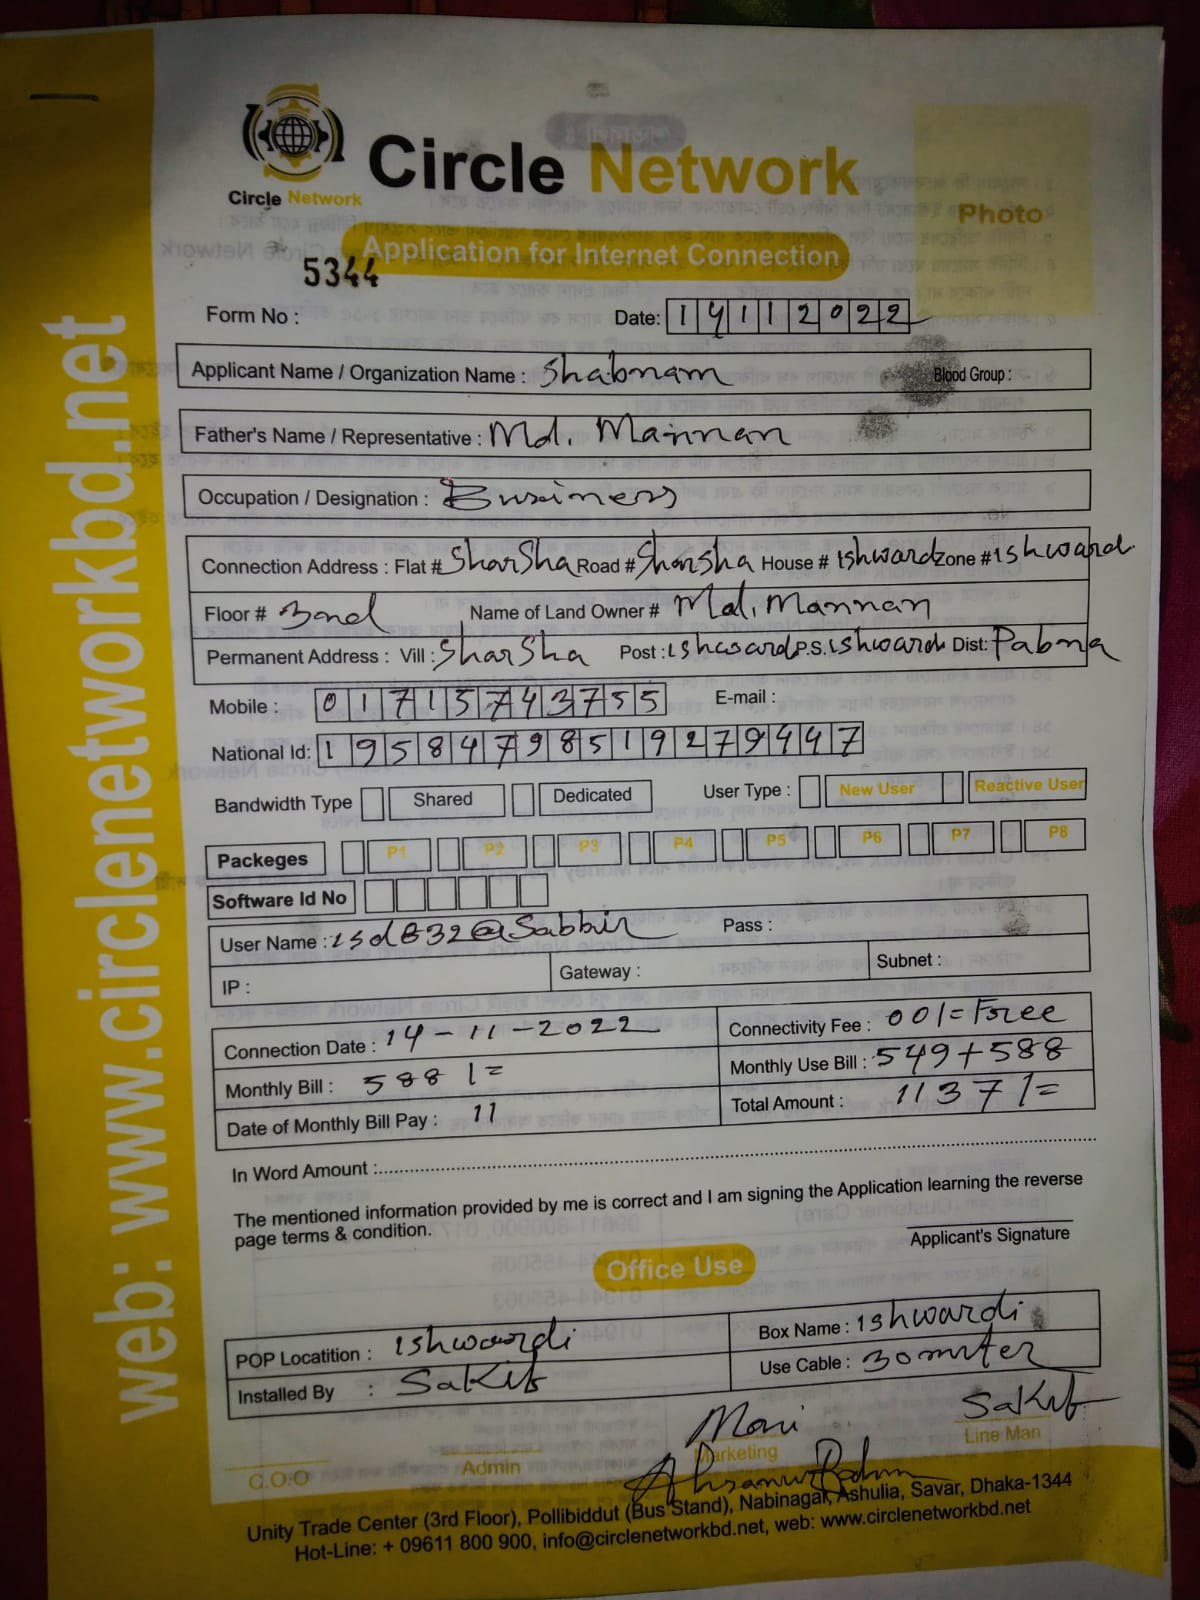 Circle Network
Circle Network
Photo
Application for Internet Connection
5344
Form No : Date: 14112022
Applicant Name / Organization Name : Shabnam Blood Group :
Father's Name / Representative : Md. Mannan
Occupation / Designation : Business
Connection Address : Flat # SharSha Road # Sharsha House # ishwardi Zone # ishward
Floor # 3nd Name of Land Owner # Md. Mannan
Permanent Address : Vill : SharSha Post : ishward P.S. ishwardi Dist: Pabna
Mobile : 01715743755 E-mail :
National Id: 19584798519279447
Bandwidth Type Shared Dedicated User Type : New User Reactive User
Packeges P1 P2 P3 P4 P5 P6 P7 P8
Software Id No
User Name : isd832@Sabbir Pass :
IP : Gateway : Subnet :
Connection Date : 14-11-2022 Connectivity Fee : 00/= Free
Monthly Bill : 588/= Monthly Use Bill : 549+588
Date of Monthly Bill Pay : 11 Total Amount : 1137/=
In Word Amount :
The mentioned information provided by me is correct and I am signing the Application learning the reverse
page terms & condition.
Applicant's Signature
Office Use
POP Locatition : ishwardi Box Name : ishwardi
Installed By : Sakib Use Cable : 30 miter
Moni Sakib
C.O.O Admin Marketing Line Man
Unity Trade Center (3rd Floor), Pollibiddut (Bus Stand), Nabinagar, Ashulia, Savar, Dhaka-1344
Hot-Line: + 09611 800 900, info@circlenetworkbd.net, web: www.circlenetworkbd.net
web: www.circlenetworkbd.net